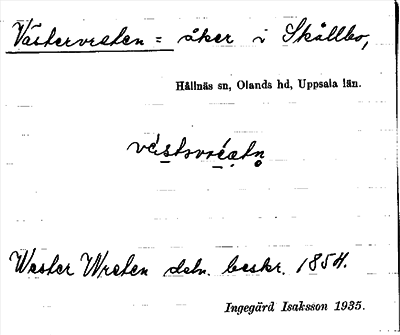 Västervreten = åker i Skållbo,
Hållnäs sn, Olands hd, Uppsala län.
Wester Wreten dsbn. beskr. 1854.
Ingegärd Isaksson 1935.